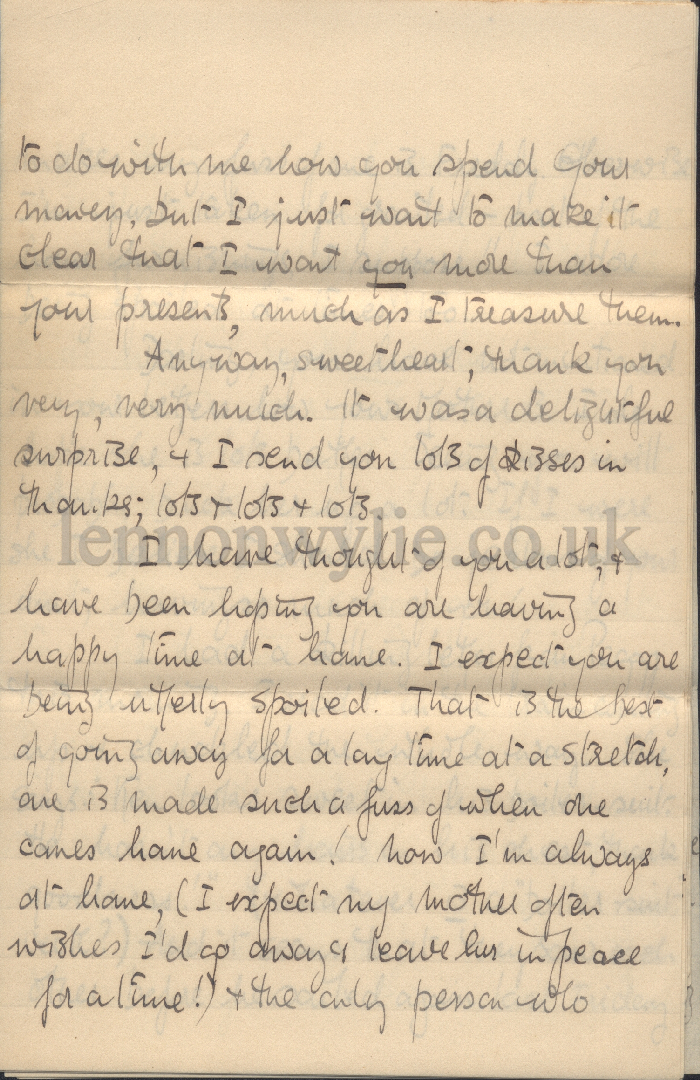 to do with me how you spend your
money, but I just want to make it
clear that I want you more than
your presents, much as I treasure them.
Anyway, sweetheart, thank you
very, very much. It was a delightful
surprise, & I send you lots of kisses in
thanks; lots & lots & lots.
lennonwylie.co.uk
I have thought of you a lot, &
have been hoping you are having a
happy time at home. I expect you are
being utterly spoiled. That is the best
of going away for a long time at a stretch,
one is made such a fuss of when one
comes home again! Now I'm always
at home, (I expect my mother often
wishes I'd go away & leave her in peace
for a time!) & the only person who